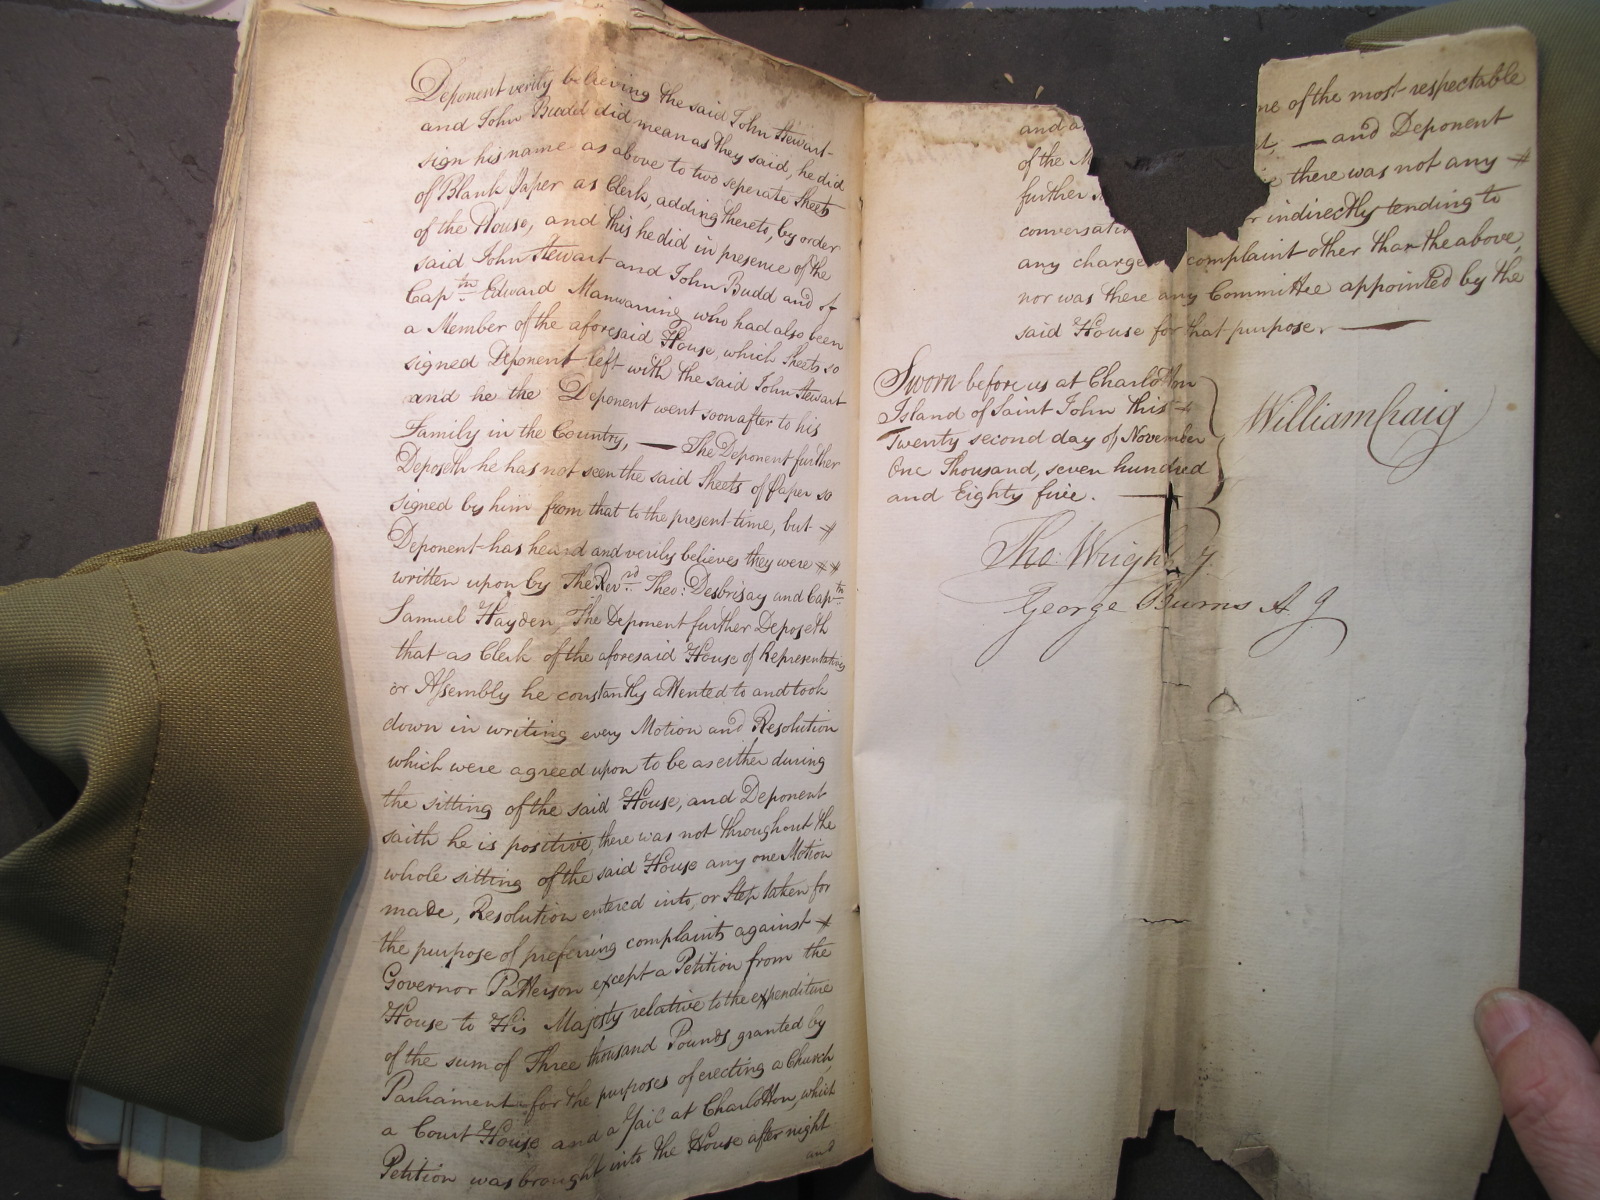 Deponent verily believing the said John Stewart
and John Budd did mean as they said, he did
sign his name as above to two seperate Sheets
of Blank Paper as Clerk, adding thereto, by order
of the House, and this he did in presence of the
said John Stewart and John Budd and of
Capⁿ Edward Manwaring who had also been
a Member of the aforesaid House, which Sheets so
signed Deponent left with the said John Stewart
and he the Deponent went soon after to his
Family in the Country, — The Deponent further
Deposeth he has not seen the said Sheets of Paper so
signed by him from that to the present time, but
Deponent has heard and verily believes they were
written upon by The Revrd Theo: Desbrisay and Captn
Samuel Hayden, The Deponent further Deposeth
that as Clerk of the aforesaid House of Representatives
or Assembly he constantly attented to and took
down in writing every Motion and Resolution
which were agreed upon to be as either during
the sitting of the said House, and Deponent
saith he is positive, there was not throughout the
whole sitting of the said House any one Motion
made, Resolution entered into, or Step taken for
the purpose of preferring complaints against
Governor Patterson except a Petition from the
House to His Majesty relative to the expenditure
of the sum of Three thousand Pounds granted by
Parliament for the purposes of erecting a Church,
a Court House and a Jail at Charlotton, which
Petition was brought into the House after night
and
and a ne of the most respectable
of the M t, — and Deponent
further there was not any
conversatio r indirectly tending to
any charge complaint other than the above,
nor was there any Committee appointed by the
said House for that purpose. —
Sworn before us at Charlotton
Island of Saint John this
Twenty second day of November
One Thousand, seven hundred
and Eighty five. —
William Craig
Tho: Wright
George Burns A J